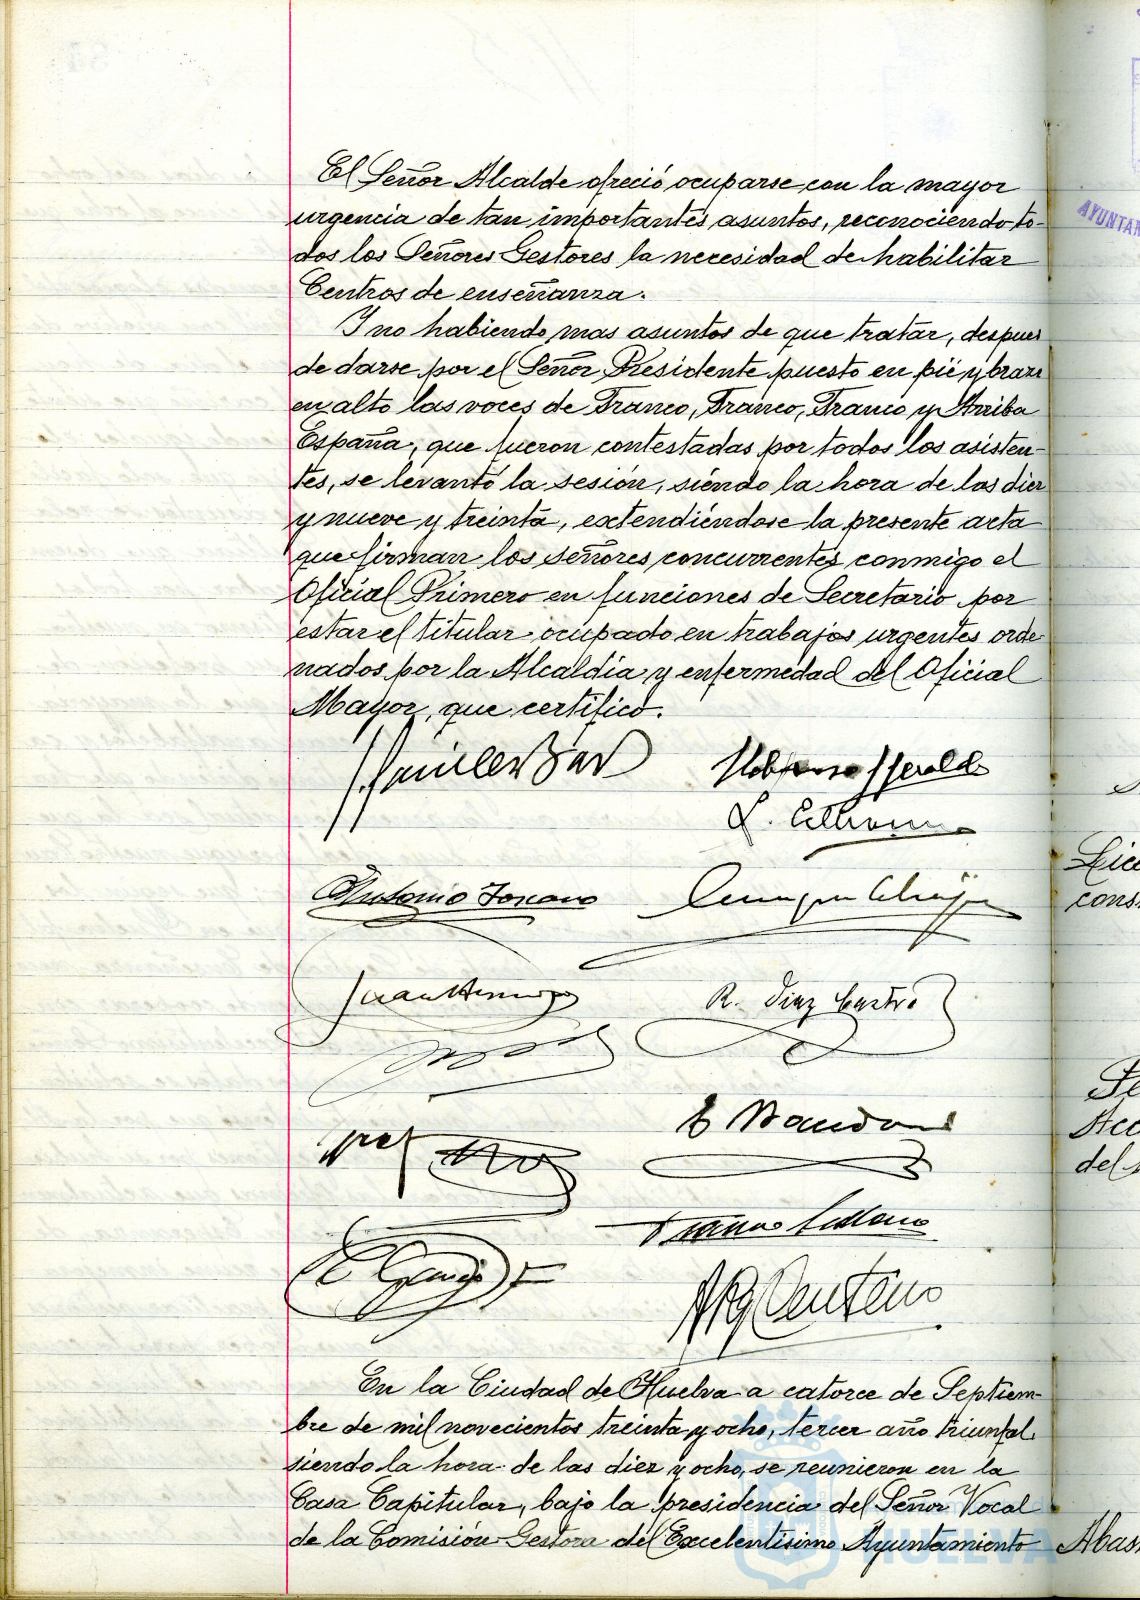 El Señor Alcalde ofreció ocuparse con la mayor
urgencia de tan importantes asuntos, reconociendo to-
dos los Señores Gestores la necesidad de habilitar
Centros de enseñanza.
Y no habiendo mas asuntos de que tratar, despues
de darse por el Señor Presidente puesto en pié y brazo
en alto las voces de Franco, Franco, Franco y Arriba
España, que fueron contestadas por todos los asisten-
tes, se levantó la sesión, siendo la hora de las diez
y nueve y treinta, extendiéndose la presente acta
que firman los señores concurrentes conmigo el
Oficial Primero en funciones de Secretario por
estar el titular ocupado en trabajos urgentes orde
nados por la Alcaldia y enfermedad del Oficial
Mayor, que certifico.
Antonio
R. Diaz Castro
Centeno
En la Ciudad de Huelva a catorce de Septiem-
bre de mil novecientos treinta y ocho, tercer año triunfal
siendo la hora de las diez y ocho, se reunieron en la
Casa Capitular, bajo la presidencia del Señor Vocal
de la Comisión Gestora del Excelentísimo Ayuntamiento
HUELVA
AYUNTAM
cons
del
Abas